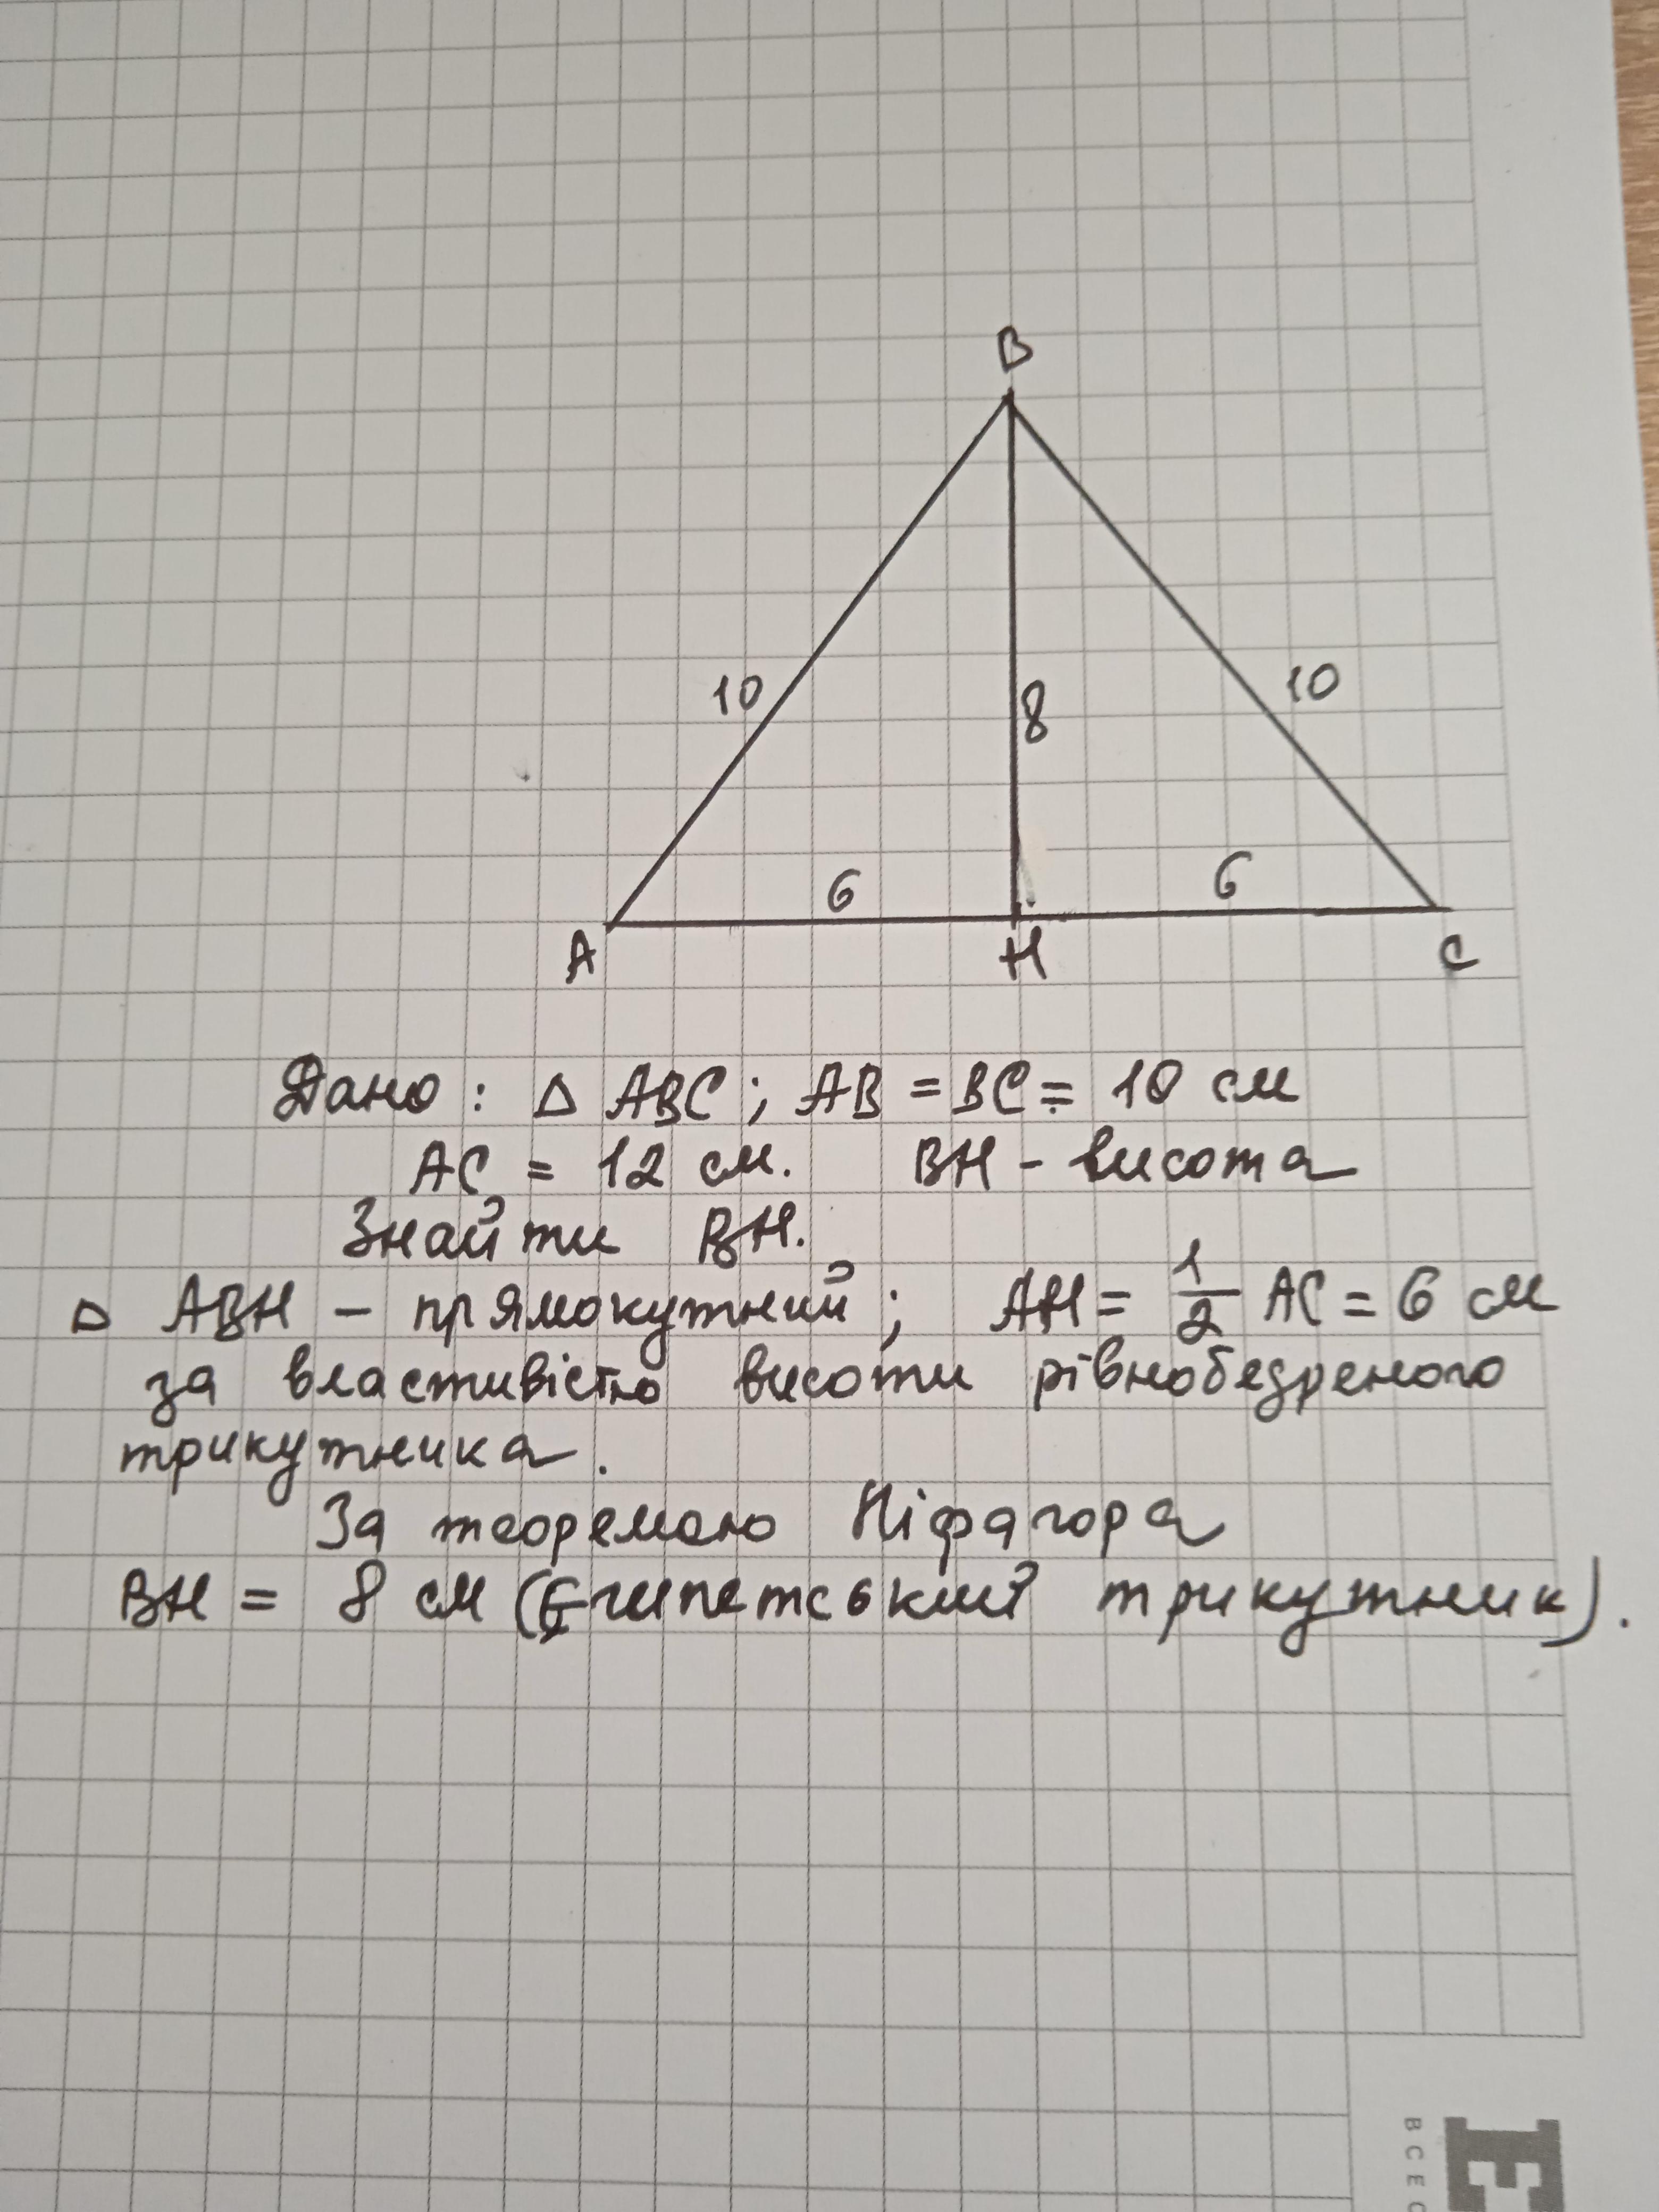 B
10
8
10
6
6
A
H
C
Дано: Δ ABC; AB = BC = 10 см
AC = 12 см. BH - висота
Знайти BH.
Δ ABH - прямокутний; AH = 1/2 AC = 6 см
за властивістю висоти рівнобедреного
трикутника.
За теоремою Піфагора
BH = 8 см (Єгипетський трикутник).
E
ВСЕС